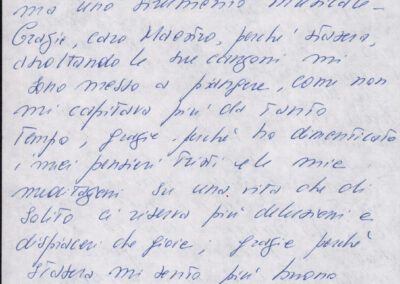 ma uno strumento musicale -
Grazie, caro Maestro, perché stasera,
ascoltando le sue canzoni mi
sono messo a piangere, come non
mi capitava più da tanto
tempo, grazie perché ho dimenticato
i miei pensieri tristi e le mie
meditazioni su una vita che di
solito ci riserva più delusioni e
dispiaceri che gioie; grazie perché
stasera mi sento più buono